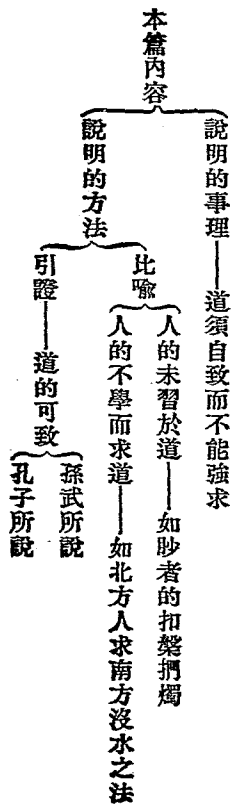 本篇內容
說明的事理——道須自致而不能強求
說明的方法
比喩
人的未習於道——如眇者的扣槃捫燭
人的不學而求道——如北方人求南方沒水之法
引證——道的可致
孫武所說
孔子所說